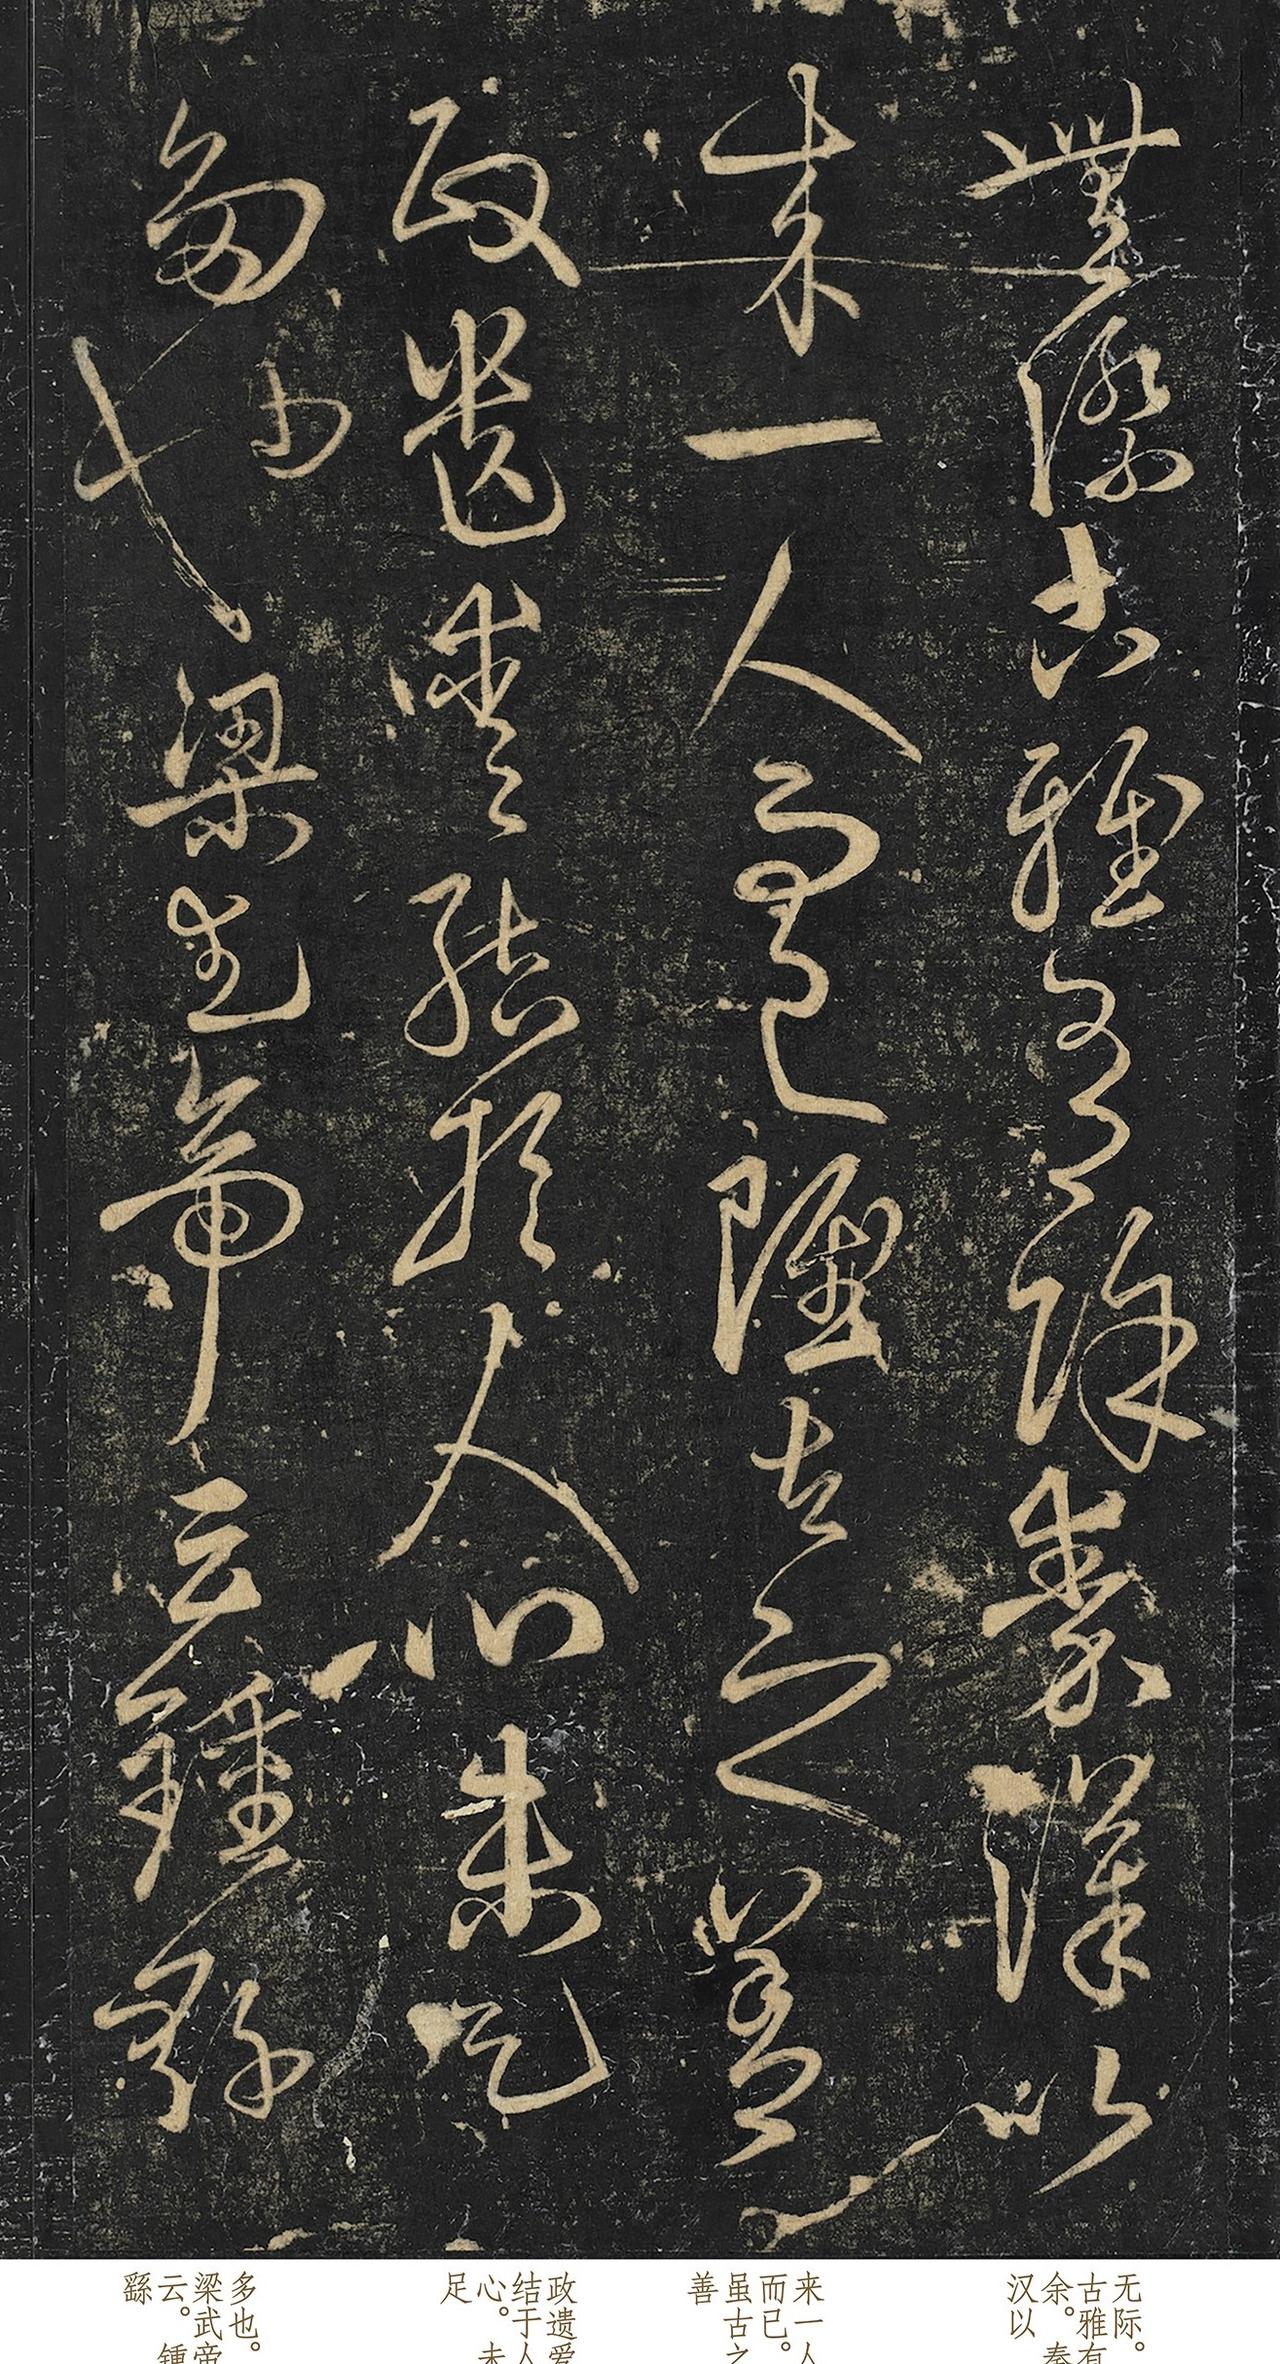 無際古雅有餘秦漢以
来一人而已雖古之善
政遺愛結於人心未足
多也梁武帝云鍾繇
无际。
古雅有
余。秦
汉以
来一人
而已。
虽古之
善
政遗爱
结于人
心。未
足
多也。
梁武帝
云。鍾
繇